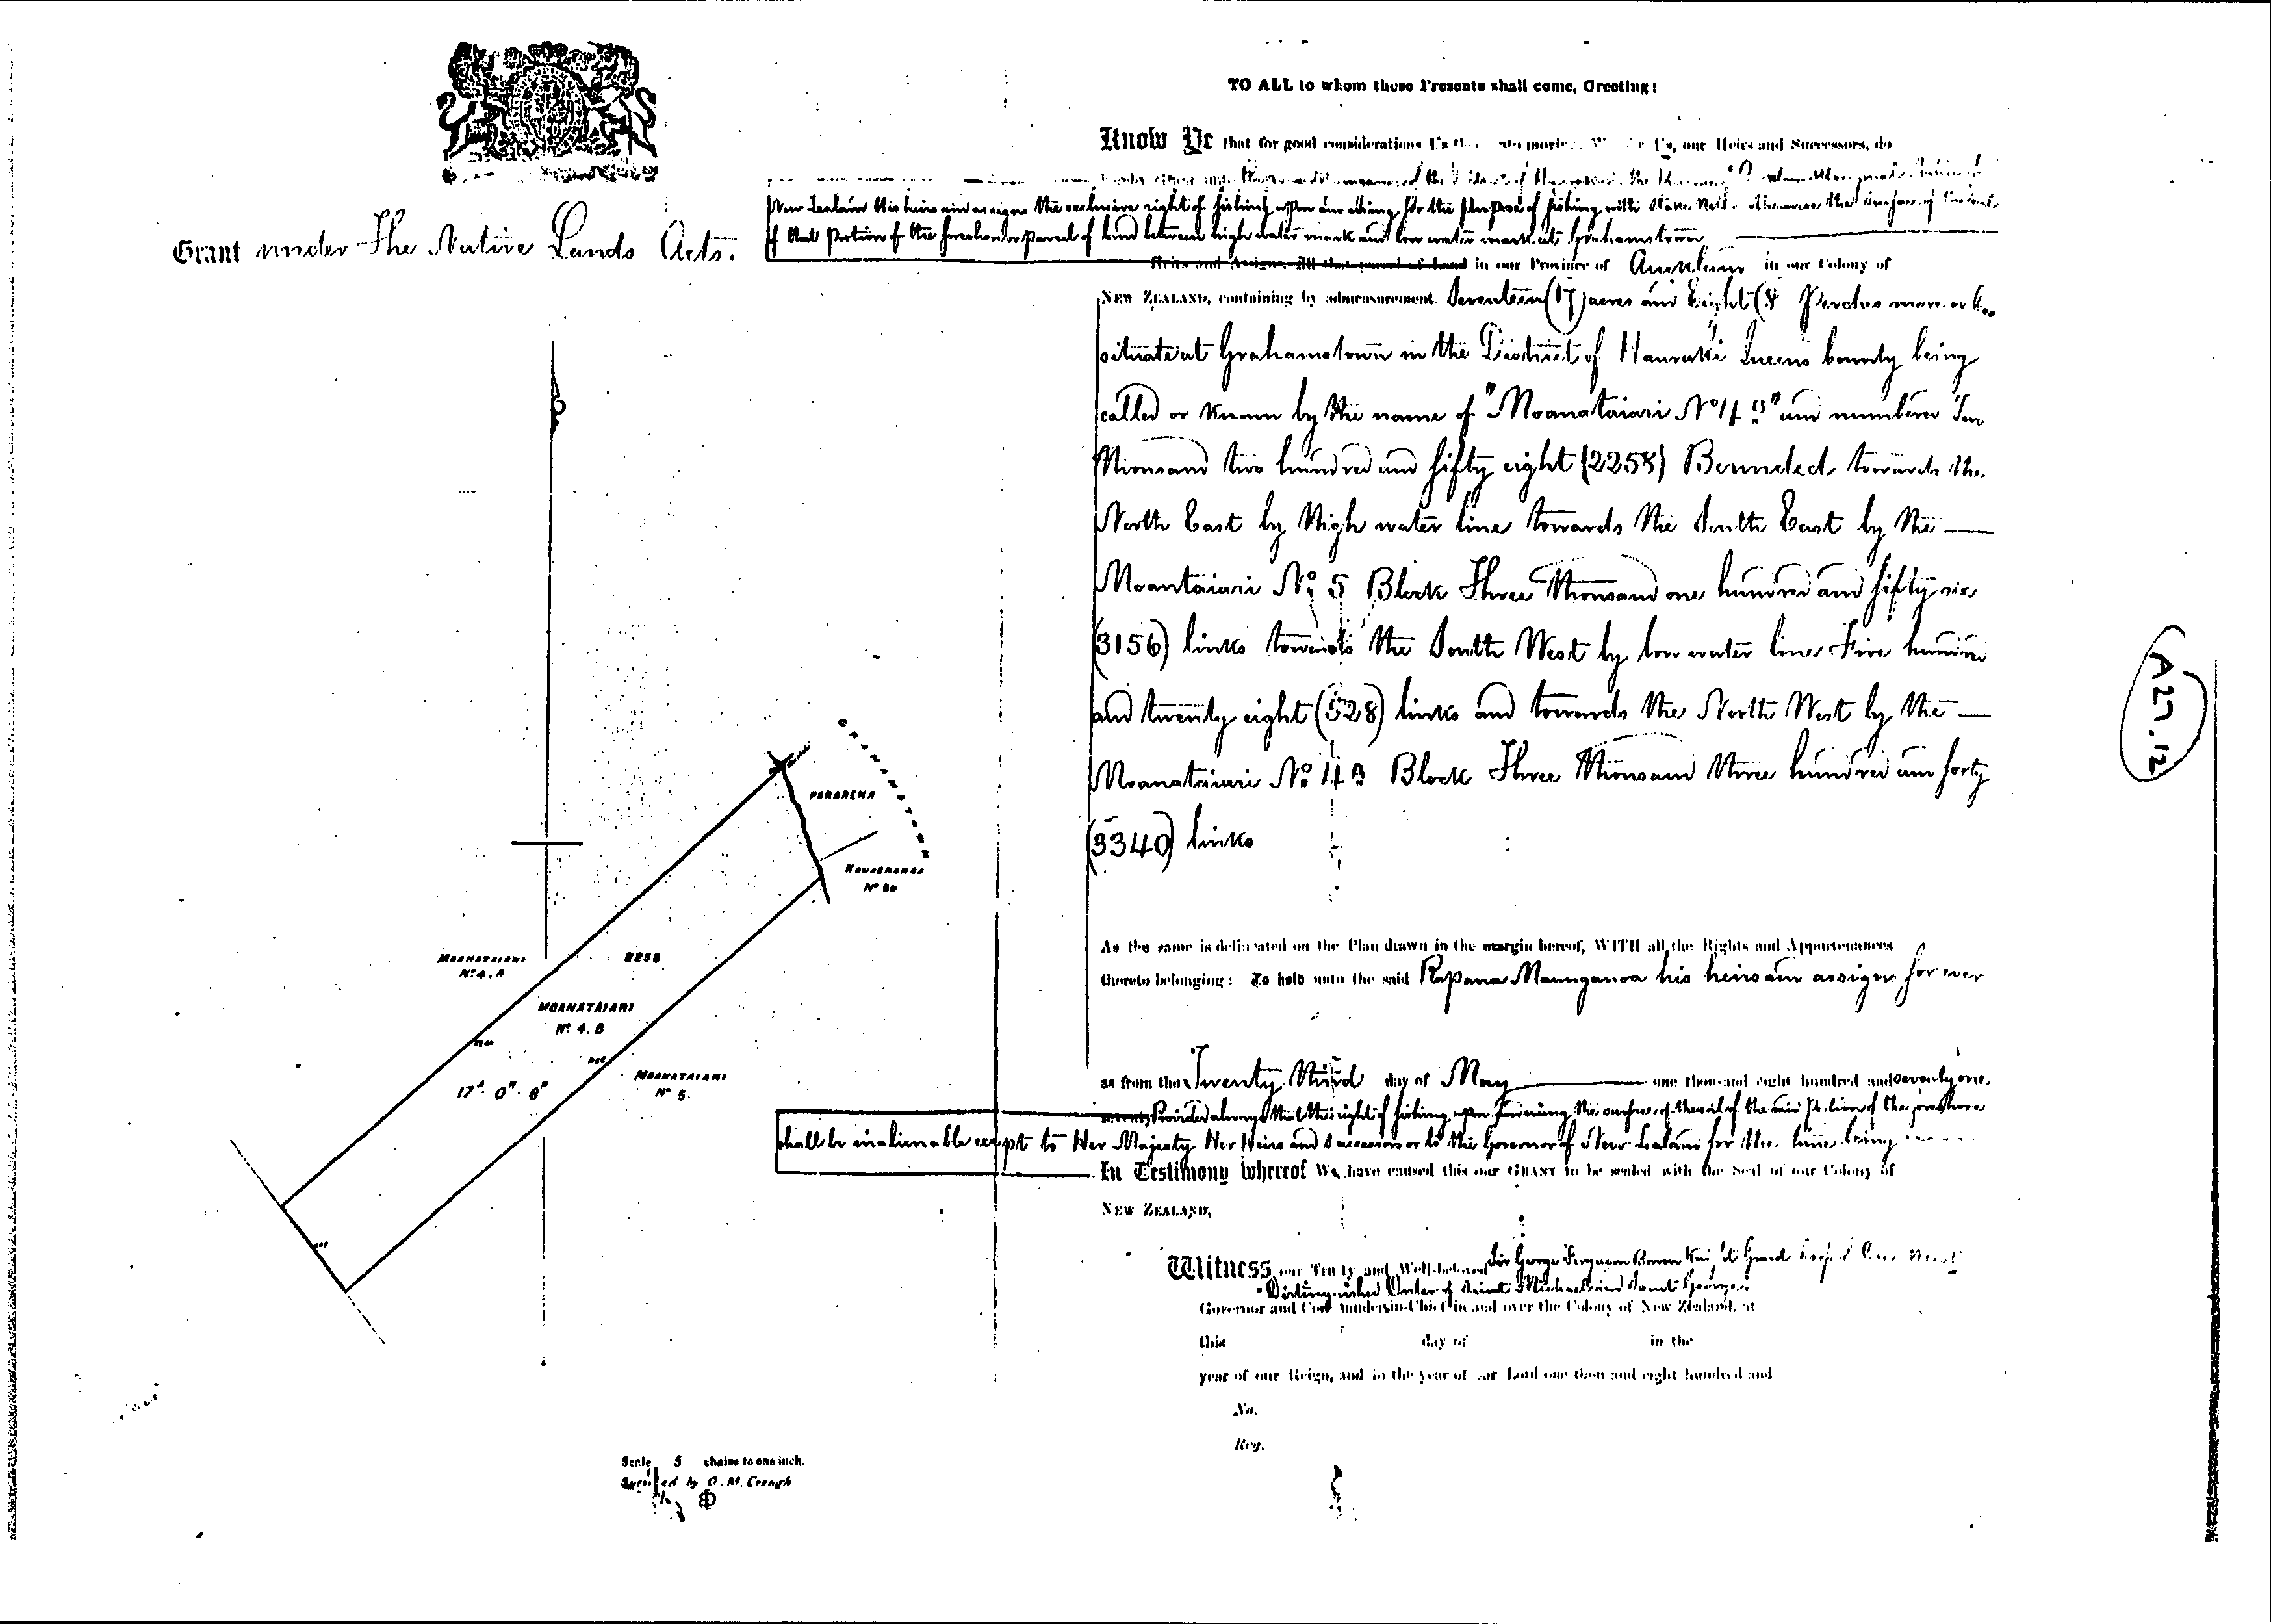 Grant under The Native Lands Acts.
TO ALL to whom these Presents shall come, Greeting:
Know Ye that for good considerations Us our Heirs and Successors, do
New Zealand His heirs and assigns the exclusive right of fishing upon and using for the purpose of fishing with Stake Nets otherwise the surface of the soil
of that portion of the foreshore or parcel of land between high water mark and low water mark at Grahamstown
Heirs and Assigns, All that parcel of Land in our Province of Auckland in our Colony of
NEW ZEALAND, containing by admeasurement Seventeen (17) acres and Eight (8 Perches more or less
situate at Grahamstown in the District of Hauraki Queens County being
called or known by the name of "Moanataiari No 4 B" and numbered Two
Thousand two hundred and fifty eight (2258) Bounded towards the
North East by High water line towards the South East by the
Moantaiari No. 5 Block Three Thousand one hundred and fifty six
(3156) links towards the South West by low water line Five hundred
and twenty eight (528) links and towards the North West by the
Moanataiari No. 4 A Block Three Thousand three hundred and forty
(3340) links
As the same is delineated on the Plan drawn in the margin hereof, WITH all the Rights and Appurtenances
thereto belonging: To hold unto the said Rapana Maunganoa his heirs and assigns for ever
as from the Twenty third day of May one thousand eight hundred and seventy one.
Provided always that the right of fishing upon the surface of the soil of the said portion of the foreshore
shall be inalienable except to Her Majesty Her Heirs and Successors or to the Governor of New Zealand for the time being
In Testimony whereof We have caused this our GRANT to be sealed with the Seal of our Colony of
NEW ZEALAND,
Witness our Trusty and Well-beloved Sir George Ferguson Bowen Knight Grand Cross of the Most
Distinguished Order of Saint Michael and Saint George
Governor and Commander-in-Chief in and over the Colony of New Zealand, at
this day of in the
year of our Reign, and in the year of our Lord one thousand eight hundred and
No.
Reg.
GRAHAMSTOWN
PARAREKA
KAUAERANGA
No
MOANATAIARI
No 4. A
2258
MOANATAIARI
No 4. B
17A. 0R. 8P
MOANATAIARI
No 5.
Scale 5 chains to one inch.
Surveyed by O. M. Creagh
A27.12